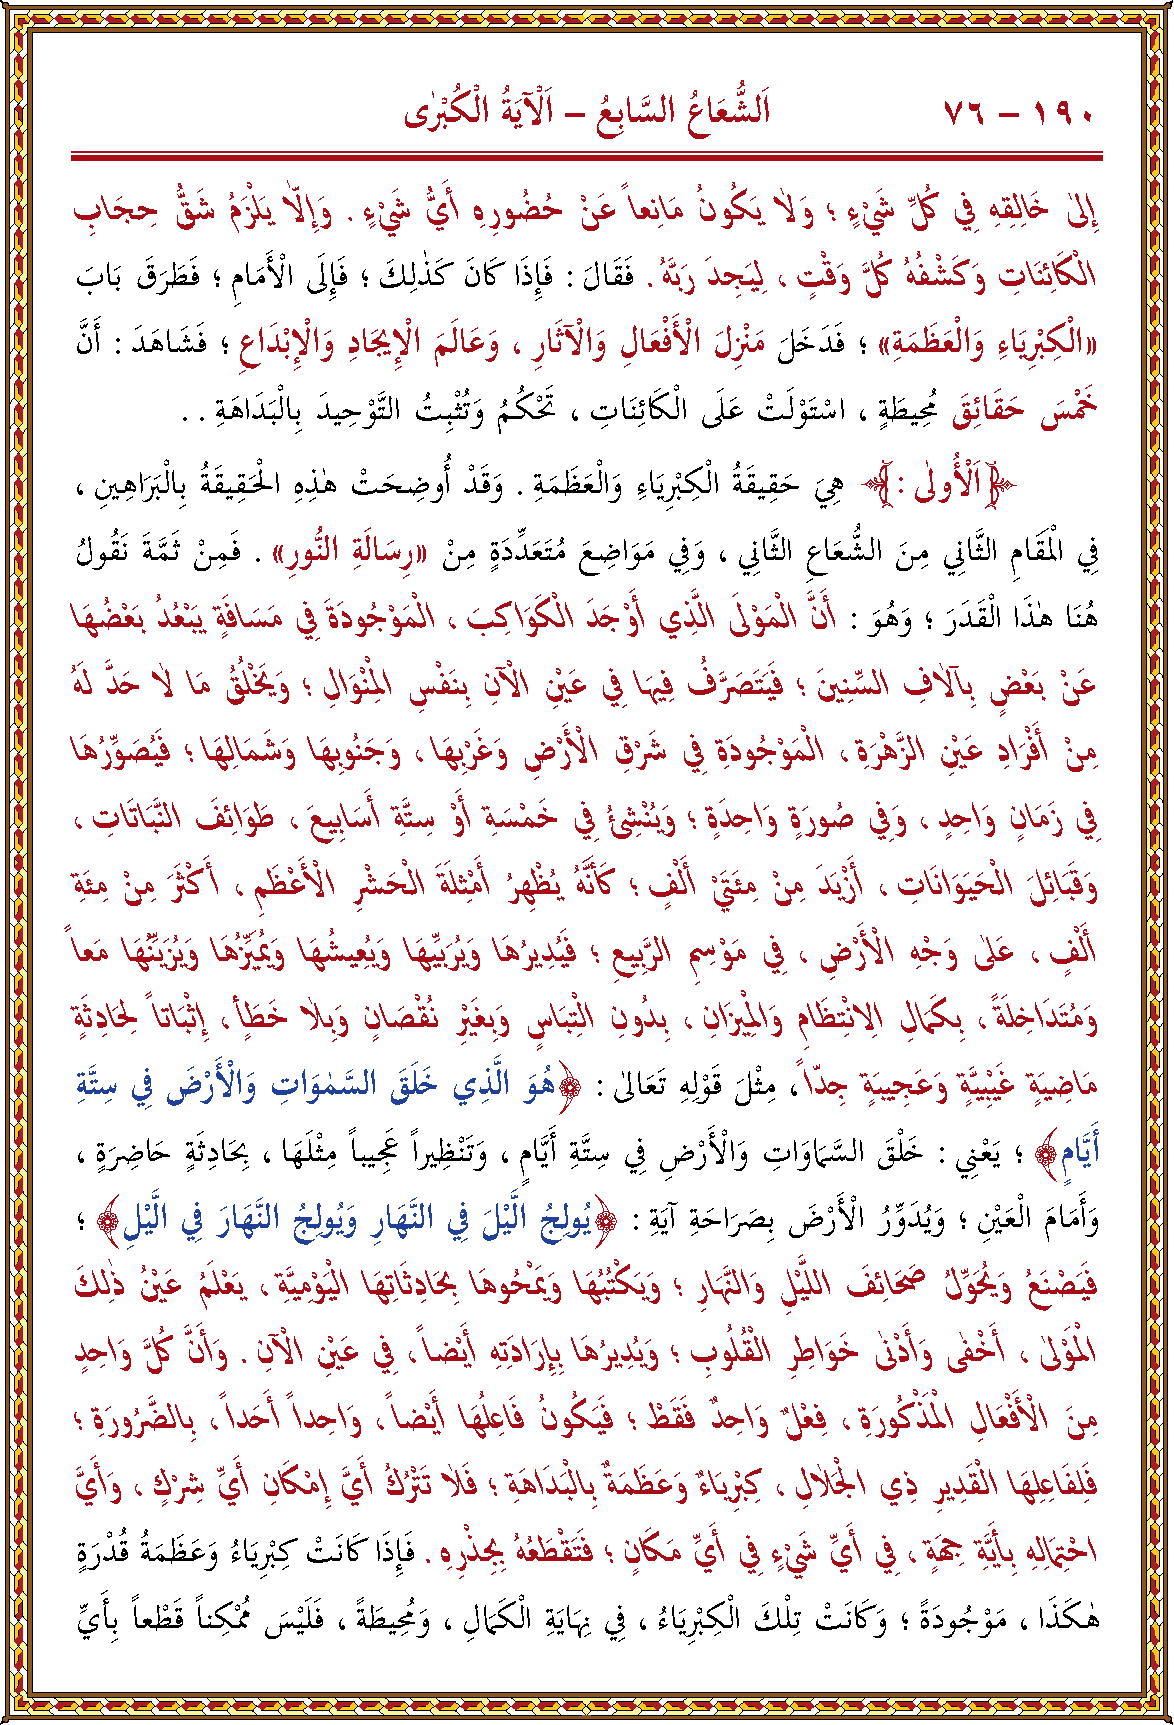 ١٩٠ – ٧٦ اَلشُّعَاعُ السَّابِعُ – اَلْآيَةُ الْكُبْرٰى
إِلىٰ خَالِقِهِ فِي كُلِّ شَيْءٍ ؛ وَلاٰ يَكُونُ مَانِعاً عَنْ حُضُورِهِ أَيُّ شَيْءٍ . وَإِلاّٰ يَلْزَمُ شَقُّ حِجَابِ
الْكَائِنَاتِ وَكَشْفُهُ كُلَّ وَقْتٍ ، لِيَجِدَ رَبَّهُ . فَقَالَ : فَإِذَا كَانَ كَذٰلِكَ ؛ فَإِلَى الْأَمَامِ ؛ فَطَرَقَ بَابَ
«الْكِبْرِيَاءِ وَالْعَظَمَةِ» ؛ فَدَخَلَ مَنْزِلَ الْأَفْعَالِ وَالْآثَارِ ، وَعَالَمَ الْإِيجَادِ وَالْإِبْدَاعِ ؛ فَشَاهَدَ : أَنَّ
خَمْسَ حَقَائِقَ مُحِيطَةٍ ، اسْتَوْلَتْ عَلَى الْكَائِنَاتِ ، تَحْكُمُ وَتُثْبِتُ التَّوْحِيدَ بِالْبَدَاهَةِ . .
﴿اَلْأُولىٰ :﴾ هِيَ حَقِيقَةُ الْكِبْرِيَاءِ وَالْعَظَمَةِ . وَقَدْ أُوضِحَتْ هٰذِهِ الْحَقِيقَةُ بِالْبَرَاهِينِ ،
فِي الْمَقَامِ الثَّانِي مِنَ الشُّعَاعِ الثَّانِي ، وَفِي مَوَاضِعَ مُتَعَدِّدَةٍ مِنْ «رِسَالَةِ النُّورِ» . فَمِنْ ثَمَّةَ نَقُولُ
هُنَا هٰذَا الْقَدَرَ ؛ وَهُوَ : أَنَّ الْمَوْلَى الَّذِي أَوْجَدَ الْكَوَاكِبَ ، الْمَوْجُودَةَ فِي مَسَافَةٍ يَبْعُدُ بَعْضُهَا
عَنْ بَعْضٍ بِآلاٰفِ السِّنِينَ ؛ فَيَتَصَرَّفُ فِيهَا فِي عَيْنِ الْآنِ بِنَفْسِ الْمِنْوَالِ ؛ وَيَخْلُقُ مَا لاٰ حَدَّ لَهُ
مِنْ أَفْرَادِ عَيْنِ الزَّهْرَةِ ، الْمَوْجُودَةِ فِي شَرْقِ الْأَرْضِ وَغَرْبِهَا ، وَجَنُوبِهَا وَشَمَالِهَا ؛ فَيُصَوِّرُهَا
فِي زَمَانٍ وَاحِدٍ ، وَفِي صُورَةٍ وَاحِدَةٍ ؛ وَيُنْشِئُ فِي خَمْسَةِ أَوْ سِتَّةِ أَسَابِيعَ ، طَوَائِفَ النَّبَاتَاتِ ،
وَقَبَائِلَ الْحَيَوَانَاتِ ، أَزْيَدَ مِنْ مِئَتَيْ أَلْفٍ ؛ كَأَنَّهُ يُظْهِرُ أَمْثِلَةَ الْحَشْرِ الْأَعْظَمِ ، أَكْثَرَ مِنْ مِئَةِ
أَلْفٍ ، عَلىٰ وَجْهِ الْأَرْضِ ، فِي مَوْسِمِ الرَّبِيعِ ؛ فَيُدِيرُهَا وَيُرَبِّيهَا وَيُعِيشُهَا وَيُمَيِّزُهَا وَيُزَيِّنُهَا مَعاً
وَمُتَدَاخِلَةً ، بِكَمَالِ الاِنْتِظَامِ وَالْمِيزَانِ ، بِدُونِ الْتِبَاسٍ وَبِغَيْرِ نُقْصَانٍ وَبِلاٰ خَطَأٍ ، إِثْبَاتاً لِحَادِثَةٍ
مَاضِيَةٍ غَيْبِيَّةٍ وَعَجِيبَةٍ جِدّاً ، مِثْلَ قَوْلِهِ تَعَالىٰ : ﴿هُوَ الَّذِي خَلَقَ السَّمٰوَاتِ وَالْأَرْضَ فِي سِتَّةِ
أَيَّامٍ﴾ ؛ يَعْنِي : خَلْقَ السَّمَاوَاتِ وَالْأَرْضِ فِي سِتَّةِ أَيَّامٍ ، وَتَنْظِيراً عَجِيباً مِثْلَهَا ، بِحَادِثَةٍ حَاضِرَةٍ ،
وَأَمَامَ الْعَيْنِ ؛ وَيُدَوِّرُ الْأَرْضَ بِصَرَاحَةِ آيَةِ : ﴿يُولِجُ الَّيْلَ فِي النَّهَارِ وَيُولِجُ النَّهَارَ فِي الَّيْلِ﴾ ؛
فَيَصْنَعُ وَيُحَوِّلُ صَحَائِفَ اللَّيْلِ وَالنَّهَارِ ؛ وَيَكْتُبُهَا وَيَمْحُوهَا بِحَادِثَاتِهَا الْيَوْمِيَّةِ ، يَعْلَمُ عَيْنُ ذٰلِكَ
الْمَوْلىٰ ، أَخْفىٰ وَأَدْنىٰ خَوَاطِرِ الْقُلُوبِ ؛ وَيُدِيرُهَا بِإِرَادَتِهِ أَيْضاً ، فِي عَيْنِ الْآنِ . وَأَنَّ كُلَّ وَاحِدٍ
مِنَ الْأَفْعَالِ الْمَذْكُورَةِ ، فِعْلٌ وَاحِدٌ فَقَطْ ؛ فَيَكُونُ فَاعِلُهَا أَيْضاً ، وَاحِداً أَحَداً ، بِالضَّرُورَةِ ؛
فَلِفَاعِلِهَا الْقَدِيرِ ذِي الْجَلاٰلِ ، كِبْرِيَاءٌ وَعَظَمَةٌ بِالْبَدَاهَةِ ؛ فَلاٰ تَتْرُكُ أَيَّ إِمْكَانِ أَيِّ شِرْكٍ ، وَأَيَّ
احْتِمَالِهِ بِأَيَّةِ جِهَةٍ ، فِي أَيِّ شَيْءٍ فِي أَيِّ مَكَانٍ ؛ فَتَقْطَعُهُ بِجِذْرِهِ . فَإِذَا كَانَتْ كِبْرِيَاءُ وَعَظَمَةُ قُدْرَةٍ
هٰكَذَا ، مَوْجُودَةً ؛ وَكَانَتْ تِلْكَ الْكِبْرِيَاءُ ، فِي نِهَايَةِ الْكَمَالِ ، وَمُحِيطَةً ، فَلَيْسَ مُمْكِناً قَطْعاً بِأَيِّ